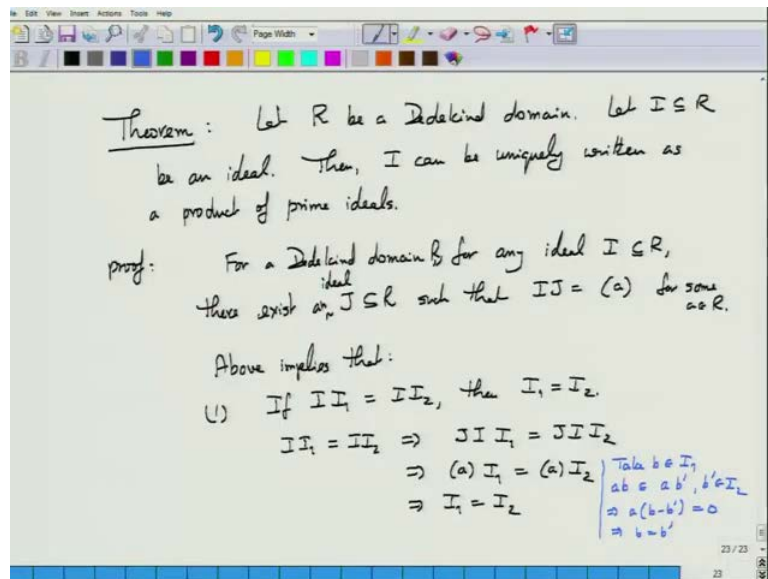 Edit View Insert Actions Tools Help
Page Width
Theorem : Let R be a Dedekind domain. Let I ⊆ R
be an ideal. Then, I can be uniquely written as
a product of prime ideals.
proof: For a Dedekind domain R for any ideal I ⊆ R,
there exist an ideal J ⊆ R such that IJ = (a) for some a ∈ R.
Above implies that:
(1) If I I₁ = I I₂, then I₁ = I₂.
I I₁ = I I₂ ⇒ J I I₁ = J I I₂
⇒ (a) I₁ = (a) I₂
⇒ I₁ = I₂
Take b ∈ I₁
ab = ab', b' ∈ I₂
⇒ a(b-b') = 0
⇒ b = b'
23 / 23
23